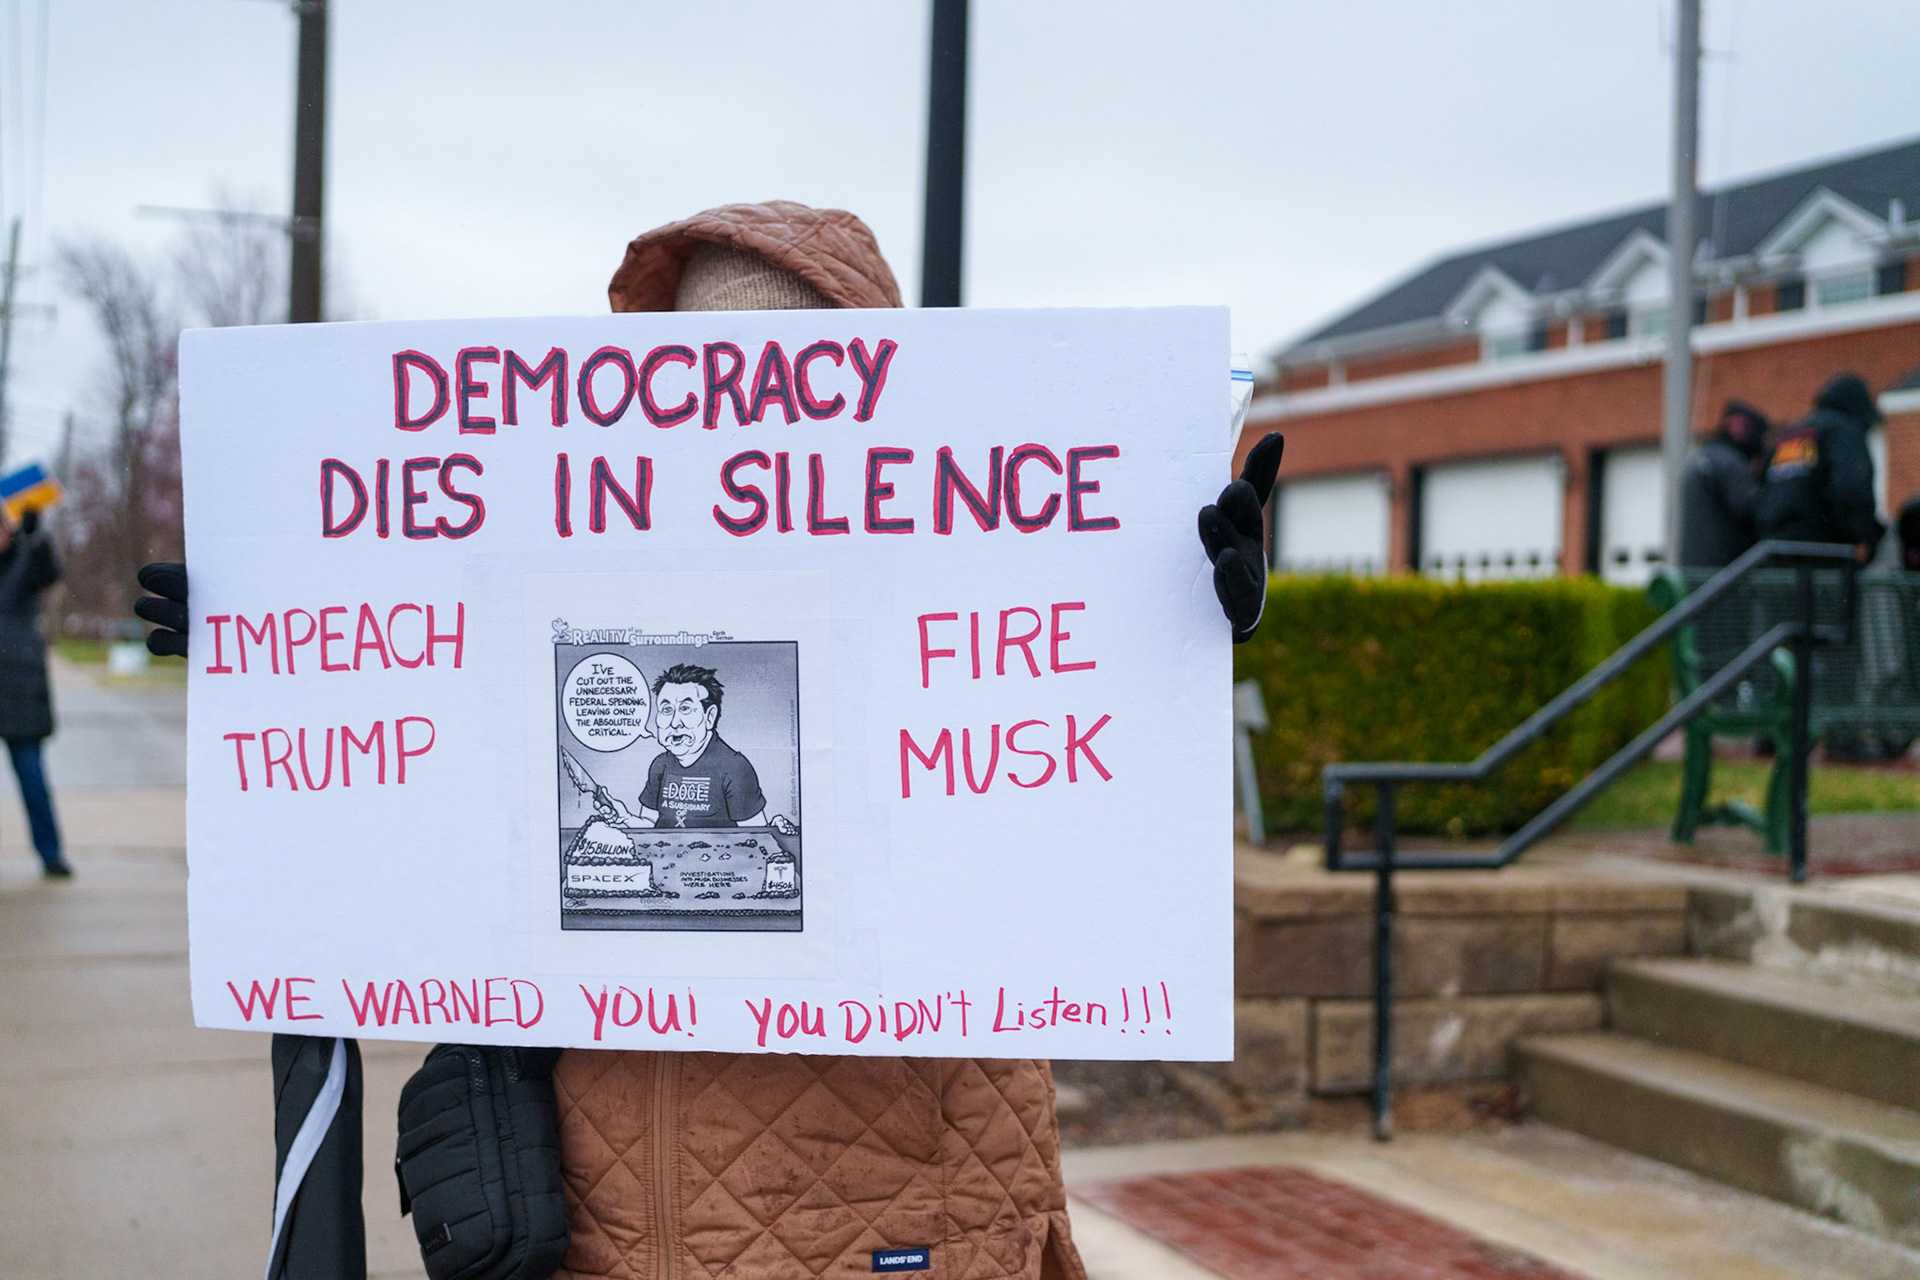 DEMOCRACY
DIES IN SILENCE
IMPEACH
TRUMP
FIRE
MUSK
REALITY of my Surroundings by Garth German
I'VE
CUT OUT THE
UNNECESSARY
FEDERAL SPENDING,
LEAVING ONLY
THE ABSOLUTELY
CRITICAL.
DOGE
A SUBSIDIARY
OF
X
$15 BILLION
SPACEX
INVESTIGATIONS
INTO MUSK BUSINESSES
WERE HERE
$450K
WE WARNED YOU! YOU DIDN'T Listen!!!
LANDS' END